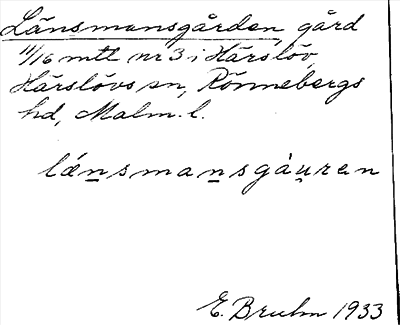 Länsmansgården, gård
11/16 mtl nr 3 i Härslöv,
Härslövs sn, Rönnebergs
hd, Malm. l.
lǽn̲sman̲sgåu̯ren
E. Bruhn 1933